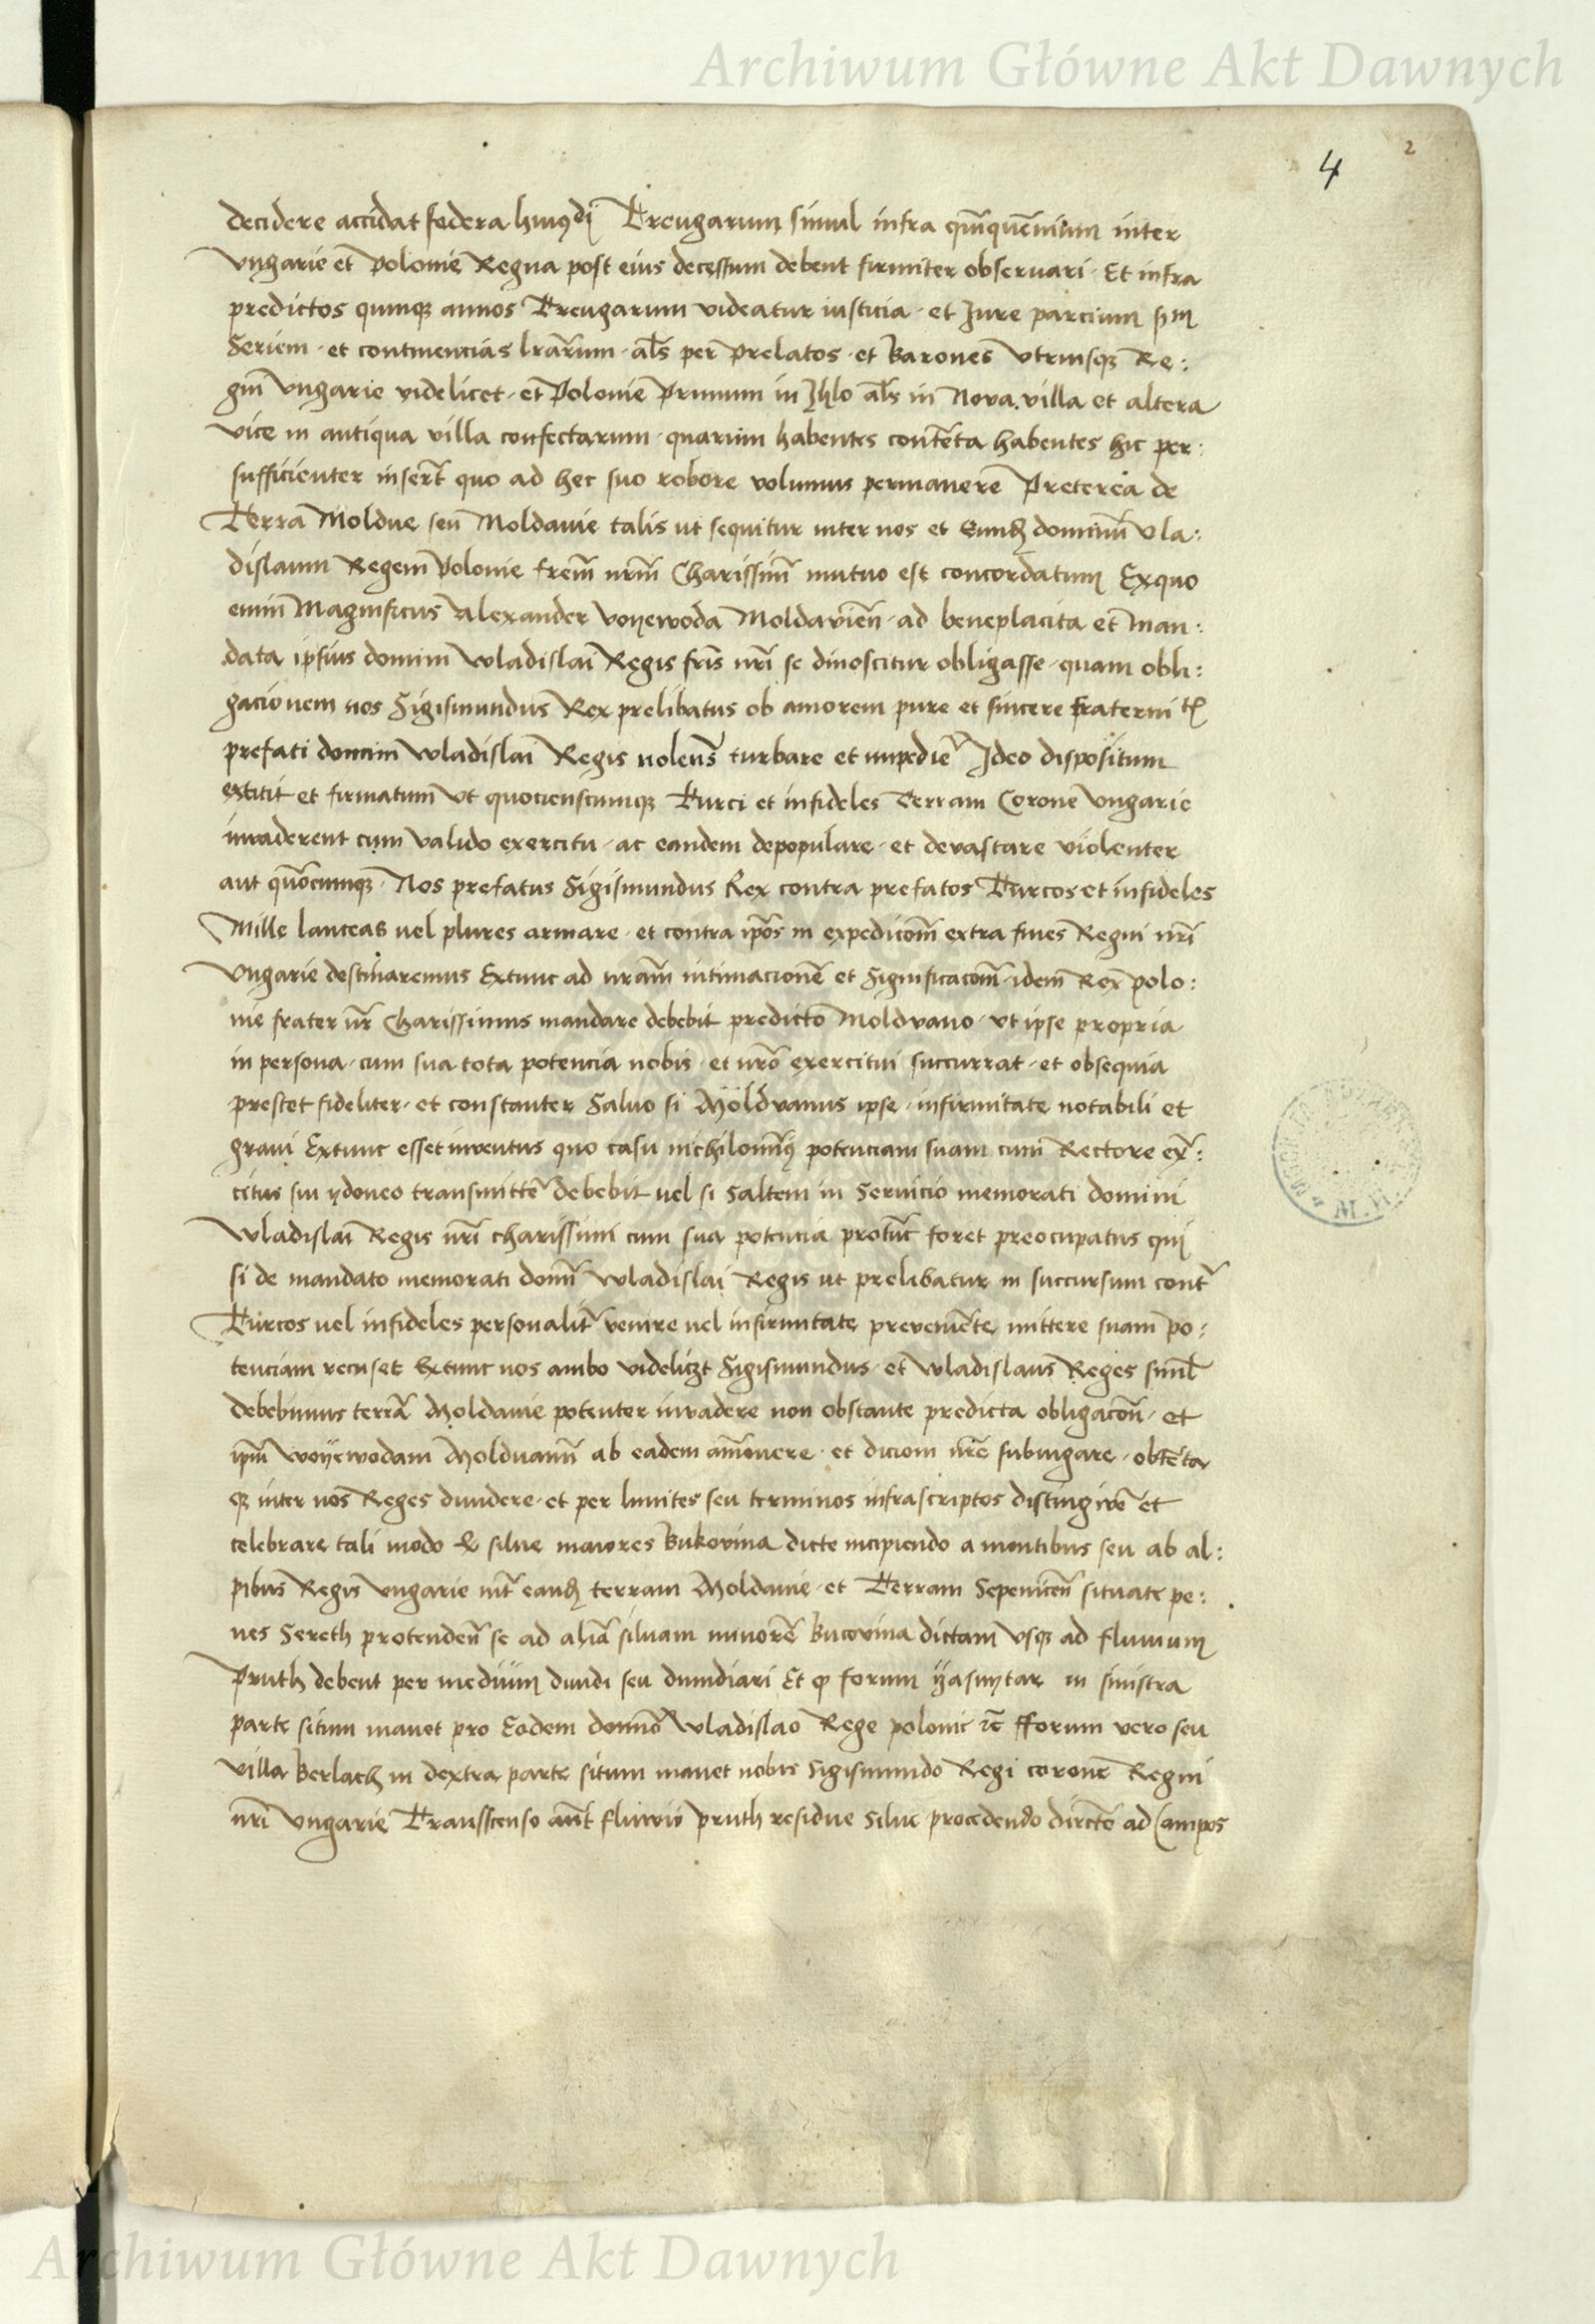 Archiwum Główne Akt Dawnych
4 2
decidere accidat federa hmōi Treugarum simul infra quīquēnium inter
Vngarie et Polonie Regna post eius decessum debent firmiter obseruari · Et infra
predictos quinqꝫ annos Treugarum videatur iusticia · et Jure parcium scdm
Seriem · et continencias lrarum · als per Prelatos · et Barones vtriusqꝫ Re:
gni Vngarie videlicet · et Polonie Primum in Jhlo als in Nova villa et altera
vice in antiqua villa confectarum · quarum habentes contēta habentes hic per:
sufficienter insert quo ad hec suo robore volumus permanere Preterea de
Terra Moldue seu Moldauie talis ut sequitur inter nos et Eundꝫ dominū Vla:
dislaum Regem Polonie frem nrm Charissim mutuo est concordatum Exquo
enim Magnificus Alexander Voyewoda Moldavien · ad beneplacita et man:
data ipsius domini Wladislai Regis fris nri se dinoscitur obligasse · quam obli:
gacionem nos Sigismundus Rex prelibatus ob amorem pure et sincere fraternitꝭ
prefati domini Wladislai Regis nolens turbare et impedie Ideo dispositum
extitit et firmatum vt quocienscumqꝫ Turci et infideles Terram Corone Vngarie
inuaderent cum valido exercitu · ac eandem depopulare · et devastare violenter
aut quōcumqꝫ · Nos prefatus Sigismundus Rex contra prefatos Turcos et infideles
Mille lanceas vel plures armare · et contra ipōs in expedicōm extra fines Regni nri
Vngarie destinaremus Extunc ad nram intimacionē et Significacōm · idem Rex polo:
nie frater nr Charissimus mandare debebit predicto Moldvano · vt ipse propria
in persona · cum sua tota potencia nobis · et nrō exercitui succurrat · et obsequia
prestet fideliter · et constanter Saluo si Möldvanus ipse · infirmitate notabili et
graui Extunc esset inventus quo casu nichilomīꝯ potenciam suam cum Rectore exer:
citus sui ydoneo transmitte debebit vel si saltem in Seruicio memorati domini
Wladislai Regis nri charissimi cum sua potencia protūc foret preocupatus qui
si de mandato memorati domi Wladislai Regis ut prelibatur in succursum cont
Turcos vel infideles personalit venire vel infirmitate preveniēte mittere suam po:
tenciam recuset Extunc nos ambo videliczt Sigismundus · et Wladislaus Reges simul
debebimus terrā Moldauie potenter invadere non obstante predicta obligacōn · et
ipm Woyewodam Molduanū ab eadem ammouere · et dicioni nrē subiugare · obtēta
qꝫ inter nos Reges diuidere · et per limites seu terminos infrascriptos distingwē et
celebrare tali modo silue maiores Bukovina dicte incipiendo a montibus seu ab al:
pibus Regis Vngarie int eandꝫ terram Moldauie · et Terram Sepenicen situate pe:
nes Sereth protenden se ad aliā siluam minorē Bucovina dictam vsqꝫ ad fluuium
Pruth debent per mediūm diuidi seu dimidiari Et forum yasmytar in sinistra
parte situm manet pro Eodem domino Wladislao Rege polonie ꝛc fforum vero seu
villa Berlach in dextra parte situm manet nobis Sigismundo Regi corone Regni
nri Vngarie Transscenso aut fluuio Pruth residue Silue procedendo directe ad Campos
Archiwum Główne Akt Dawnych